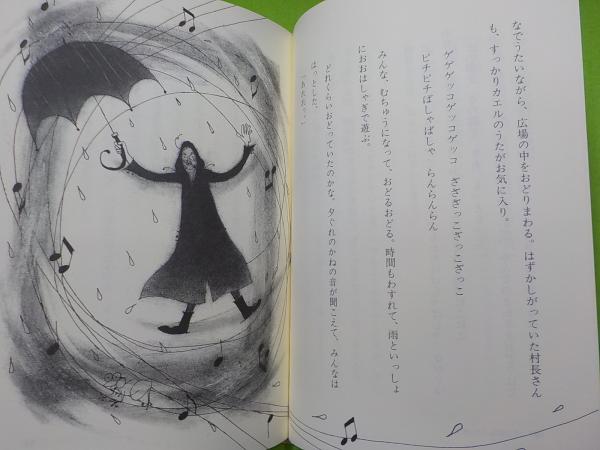 なでうたいながら、広場の中をおどりまわる。はずかしがっていた村長さん
も、すっかりカエルのうたがお気に入り。
ゲゲゲッコゲッコゲッコ　ざざざっこざっこざっこ
ピチピチぱしゃぱしゃ　らんらんらん
みんな、むちゅうになって、おどるおどる。時間もわすれて、雨といっしょ
におおはしゃぎで遊ぶ。
どれくらいおどっていたのかな。夕ぐれのかねの音が聞こえて、みんなは
はっとした。